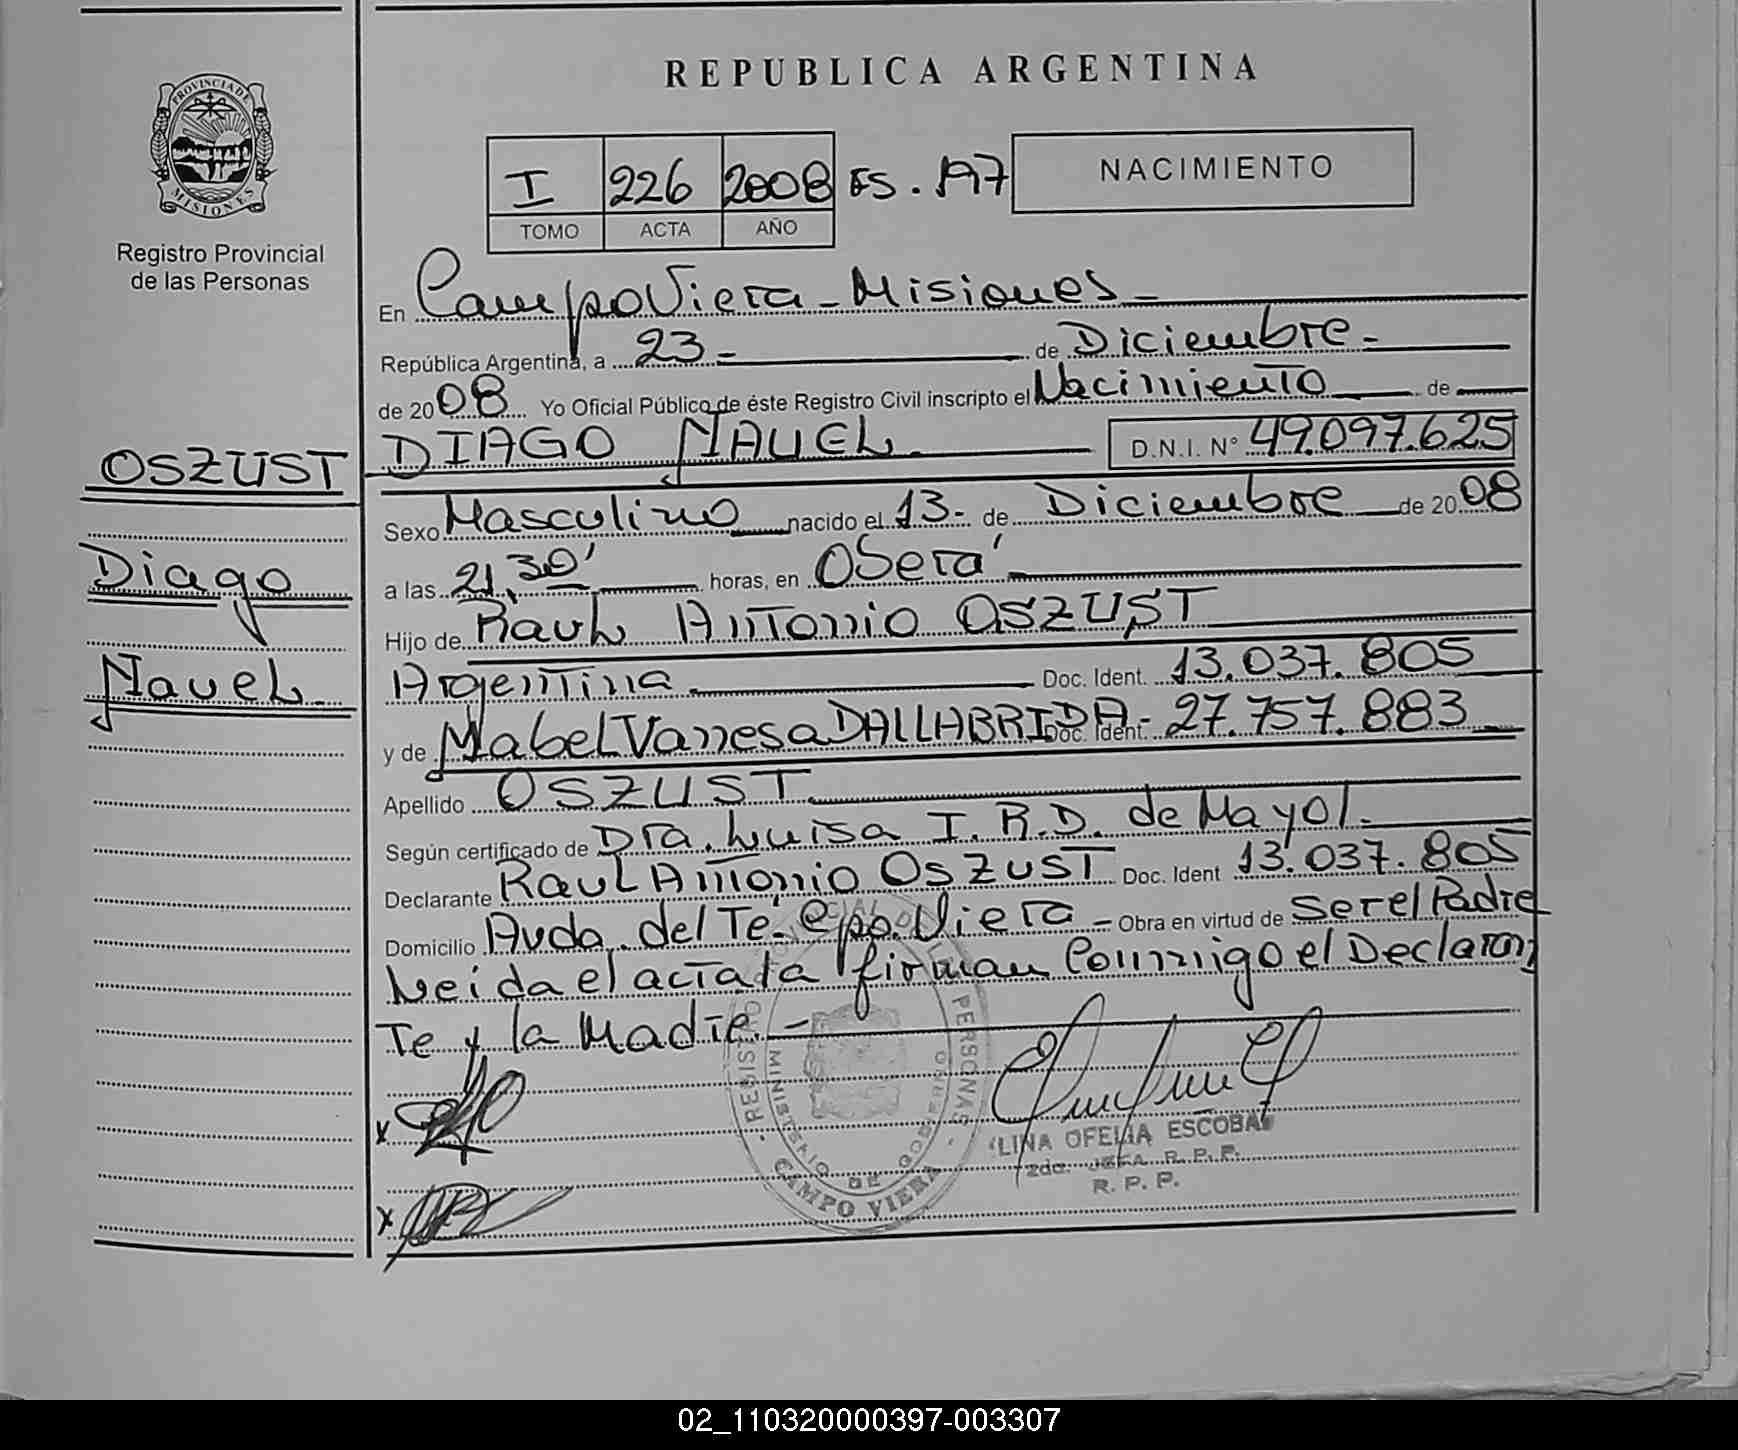 REPUBLICA ARGENTINA
PROVINCIA DE
MISIONES
Registro Provincial
de las Personas
I 226 2008 FS. 197 NACIMIENTO
TOMO ACTA AÑO
En Campo Viera - Misiones -
República Argentina, a 23 - de Diciembre -
de 2008 Yo Oficial Público de éste Registro Civil inscripto el Nacimiento de
DIAGO NAUEL D.N.I. N° 49.097.625
OSZUST
Diago
Nauel
Sexo Masculino nacido el 13- de Diciembre de 2008
a las 21,30' horas, en Oberá
Hijo de Raul Antonio OSZUST
Argentina Doc. Ident. 13.037.805
y de Mabel Vanesa DALLABRIDA - Doc. Ident. 27.757.883
Apellido OSZUST
Según certificado de Dra. Luisa I. R. D. de Mayol.
Declarante Raul Antonio OSZUST Doc. Ident 13.037.805
Domicilio Avda. del Té - Cpo. Viera - Obra en virtud de ser el Padre
Leida el acta la firman Conmigo el Declaran
Te y la Madre. -
REGISTRO PERSONAS
MINISTERIO DE GOBIERNO
CAMPO VIERA
LINA OFELIA ESCOBAR
2da. JEFA R. P. P.
R. P. P.
x
x
02_110320000397-003307